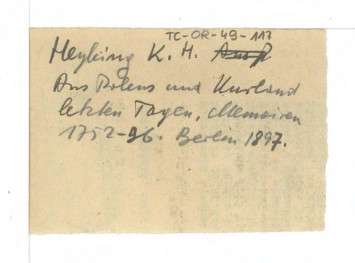 TC-OR-49-117
Heyking K. H.
Aus Polens und Kurland
letzten Tagen, Memoiren
1752-96. Berlin 1897.